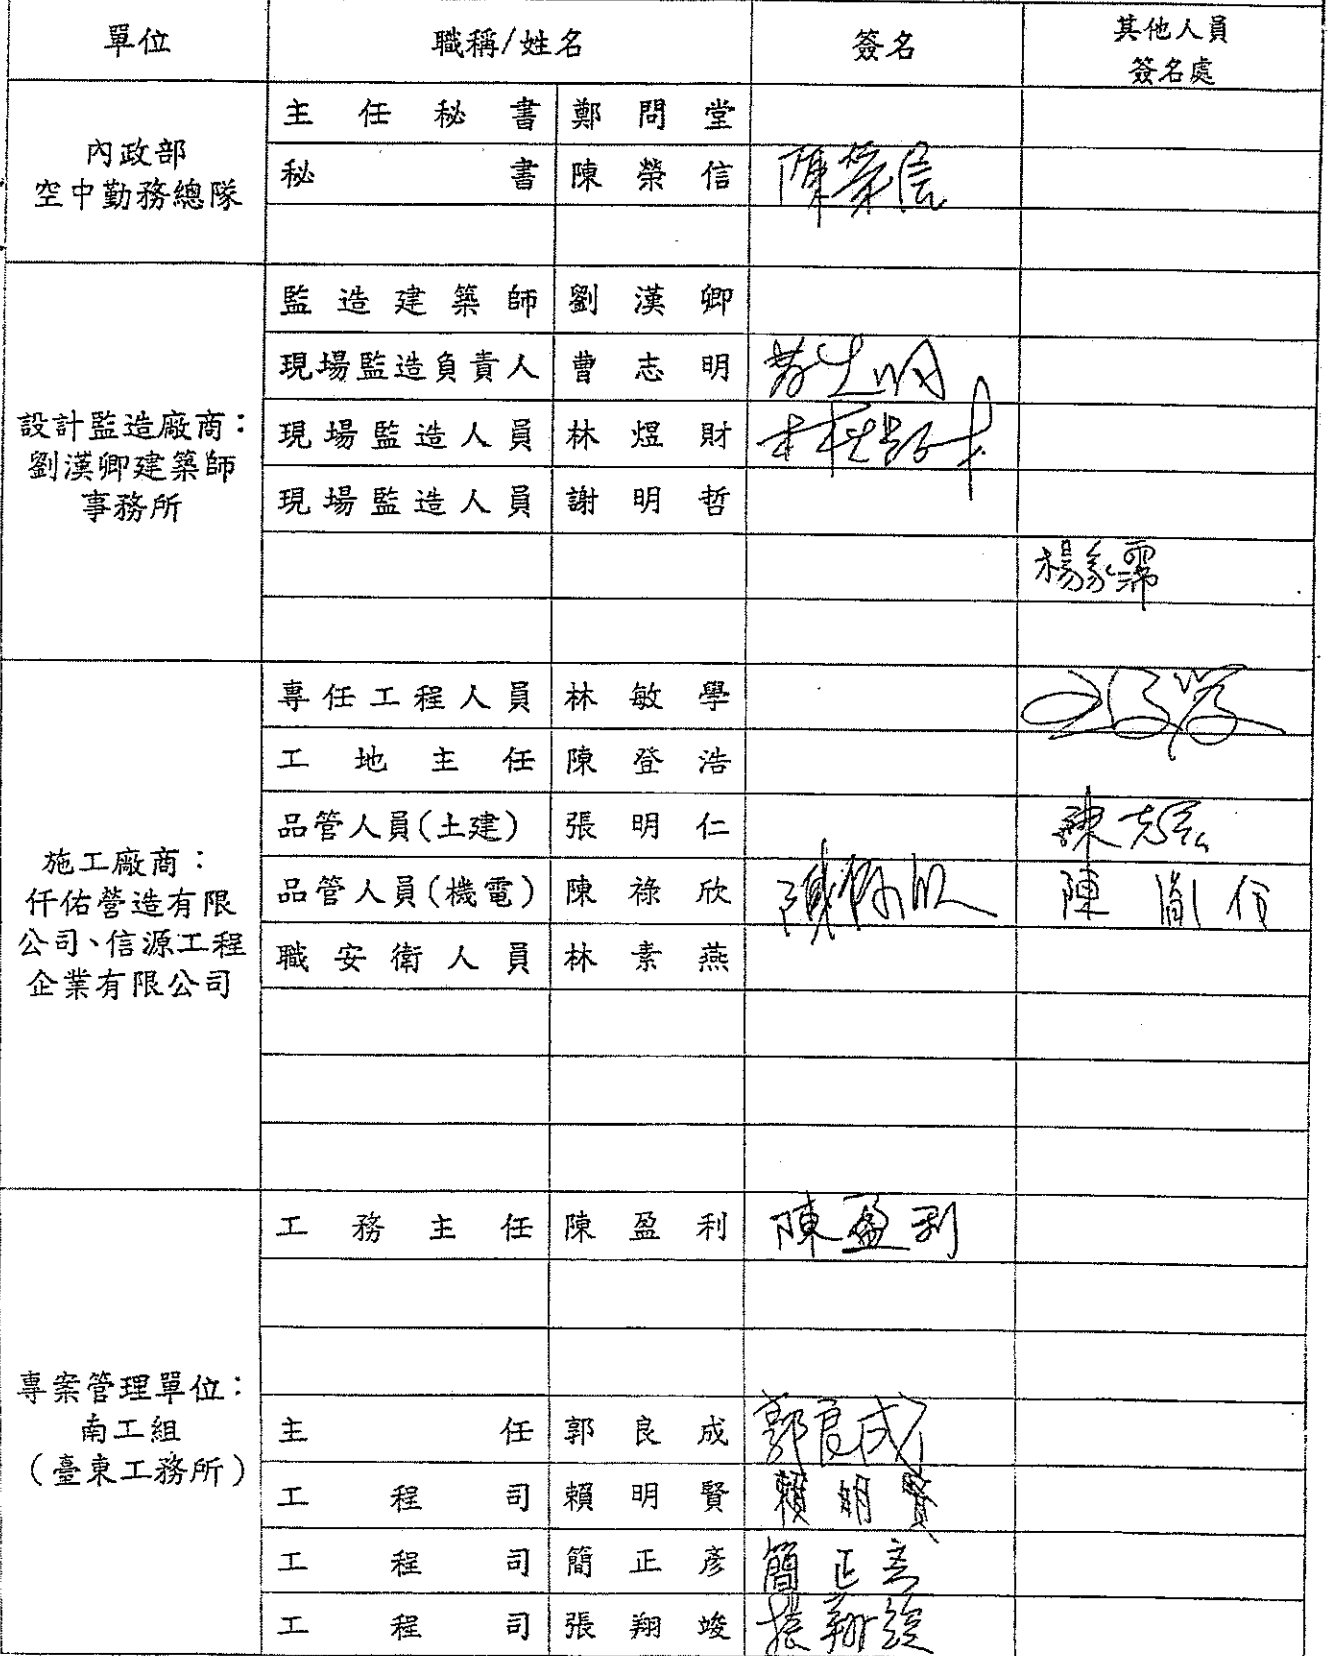 單位 職稱/姓名 簽名 其他人員
簽名處
內政部
空中勤務總隊
主任秘書 鄭問堂
秘書 陳榮信 陳榮信
設計監造廠商：
劉漢卿建築師
事務所
監造建築師 劉漢卿
現場監造負責人 曹志明
現場監造人員 林煜財
現場監造人員 謝明哲
楊家霈
施工廠商：
仟佑營造有限
公司、信源工程
企業有限公司
專任工程人員 林敏學
工地主任 陳登浩
品管人員(土建) 張明仁
品管人員(機電) 陳祿欣 陳祿欣
職安衛人員 林素燕
專案管理單位：
南工組
（臺東工務所）
工務主任 陳盈利 陳盈利
主任 郭良成 郭良成
工程司 賴明賢 賴明賢
工程司 簡正彥 簡正彥
工程司 張翔竣 張翔竣